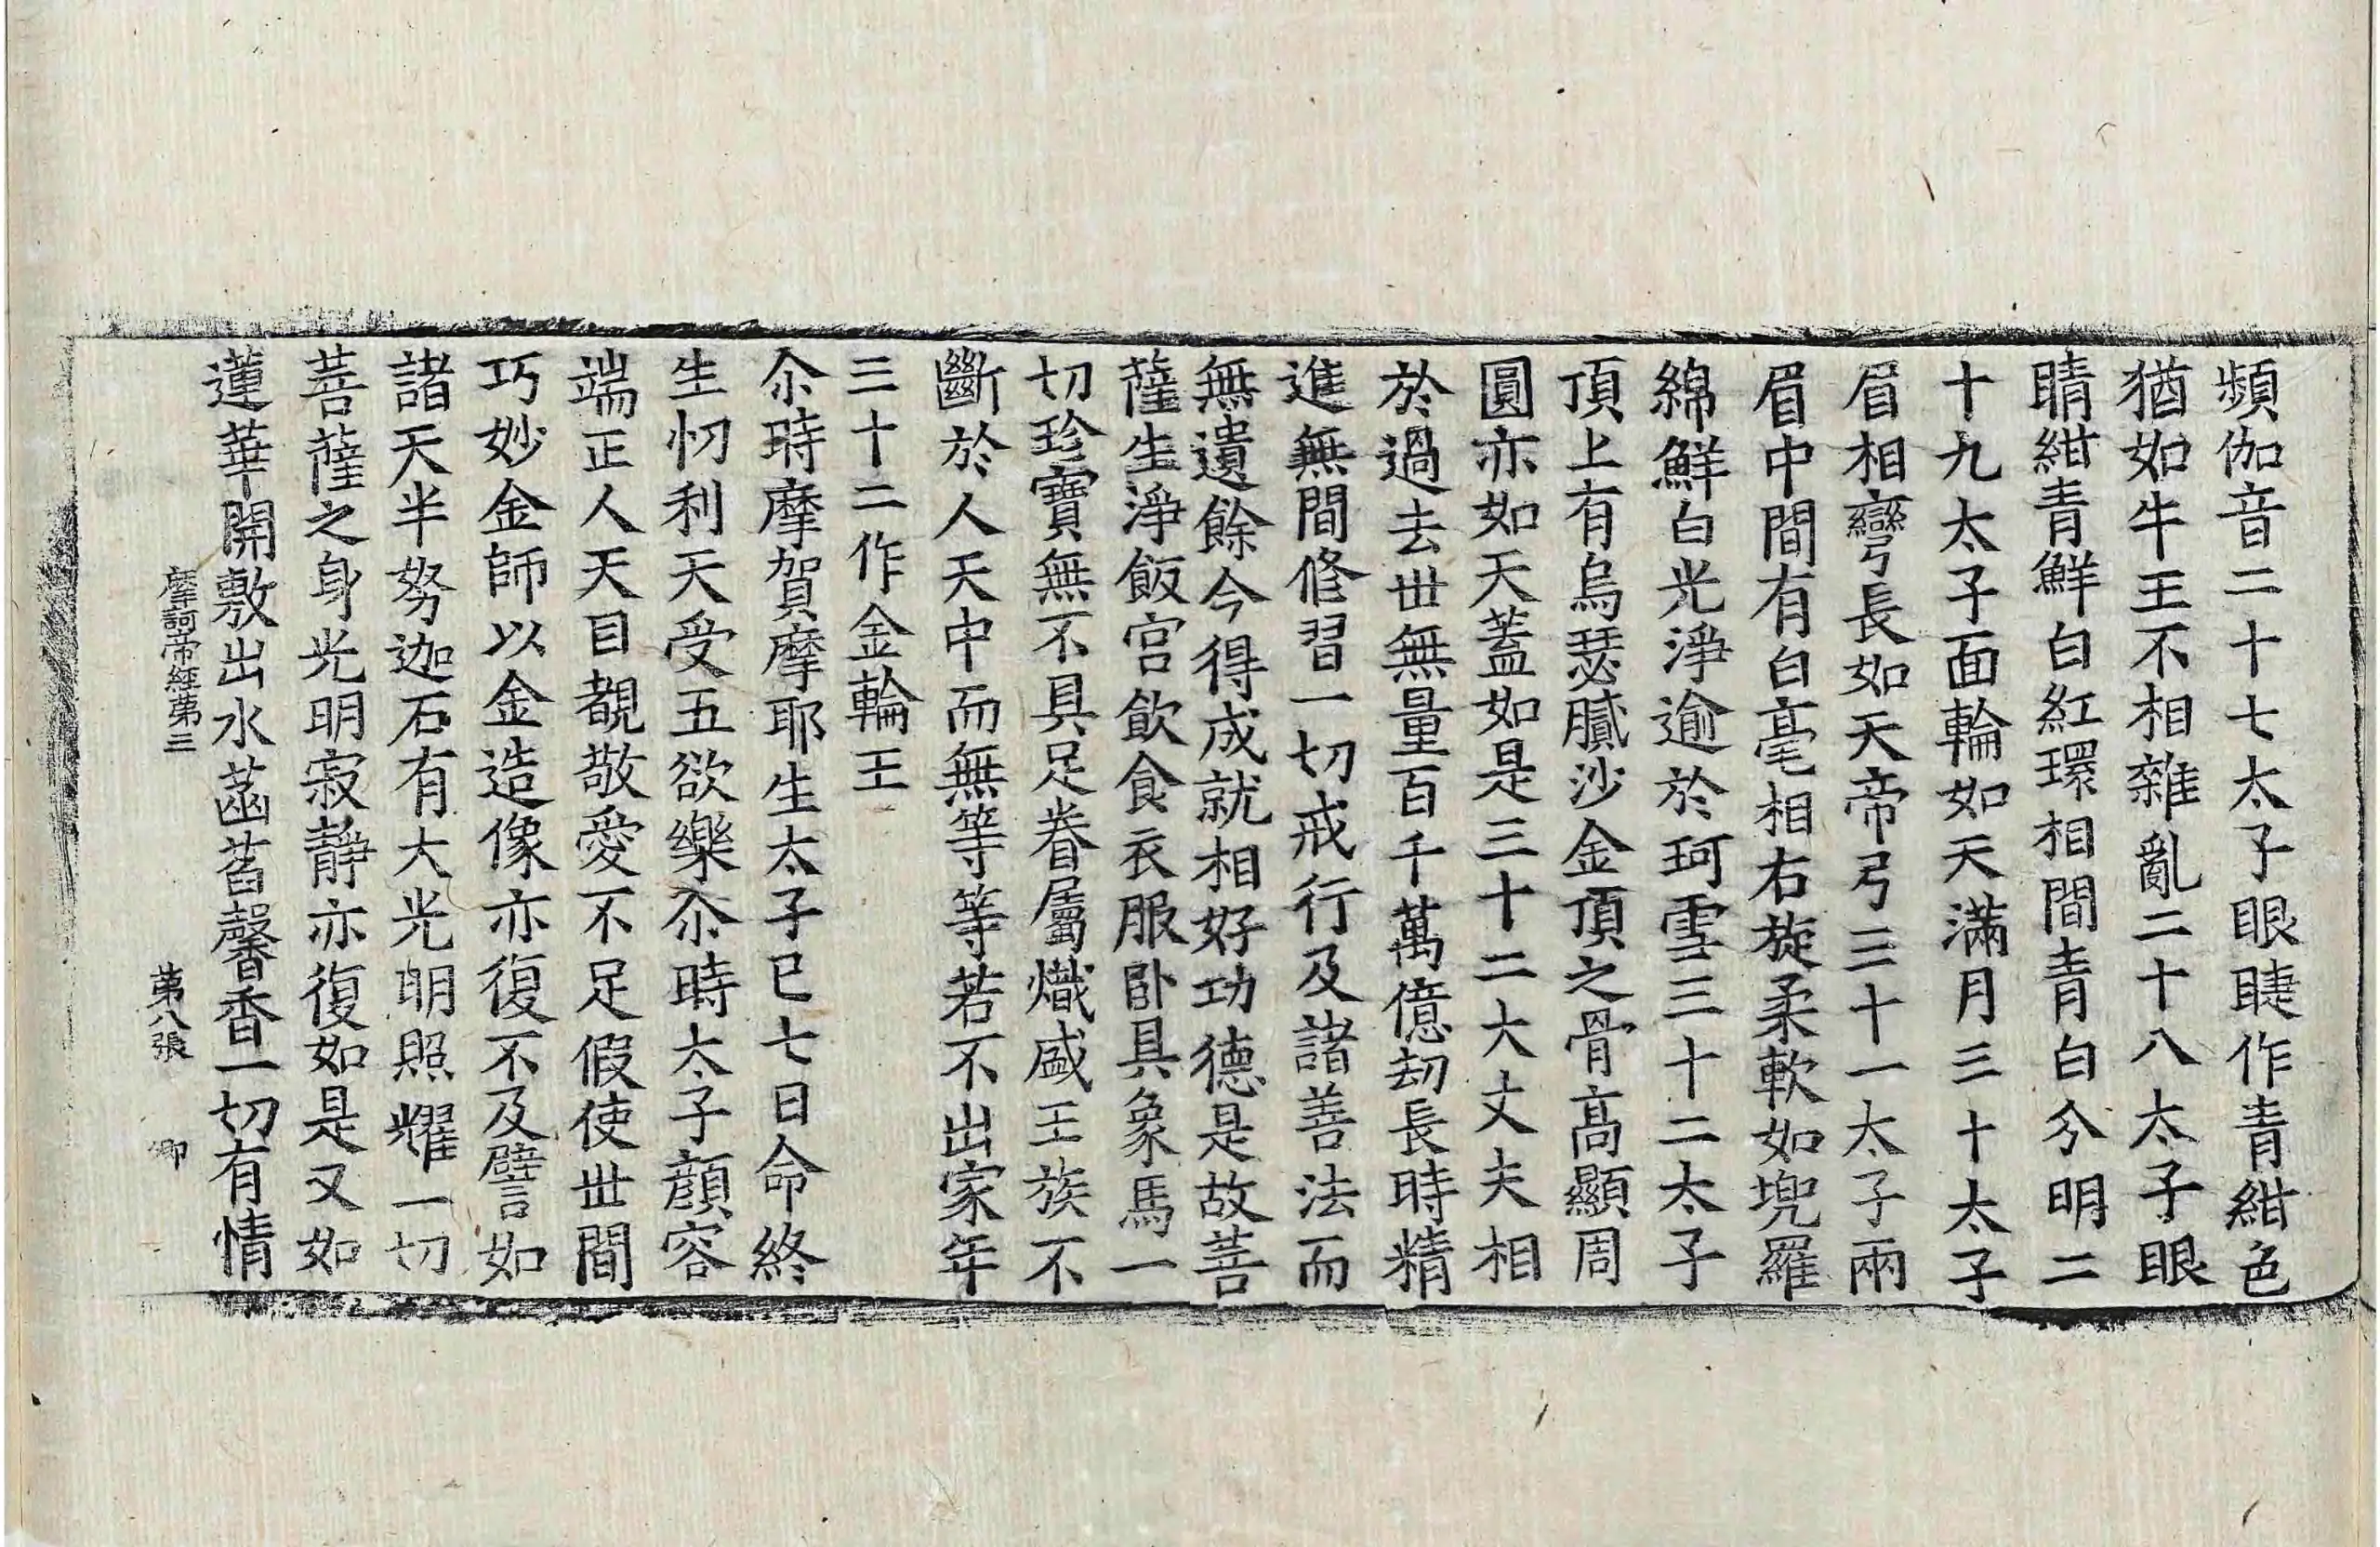 頻伽音二十七太子眼睫作青紺色
猶如牛王不相雜亂二十八太子眼
睛紺青鮮白紅環相間青白分明二
十九太子面輪如天滿月三十太子
眉相彎長如天帝弓三十一太子兩
眉中間有白毫相右旋柔軟如兜羅
綿鮮白光淨逾於珂雪三十二太子
頂上有烏瑟膩沙金頂之骨高顯周
圓亦如天蓋如是三十二大丈夫相
於過去世無量百千萬億劫長時精
進無間修習一切戒行及諸善法而
無遺餘今得成就相好功德是故菩
薩生淨飯宮飲食衣服卧具象馬一
切珍寶無不具足眷屬熾盛王族不
斷於人天中而無等等若不出家年
三十二作金輪王
尒時摩賀摩耶生太子已七日命終
生忉利天受五欲樂尒時太子顔容
端正人天目覩敬愛不足假使世間
巧妙金師以金造像亦復不及譬如
諸天半努迦石有大光明照耀一切
菩薩之身光明寂靜亦復如是又如
蓮華開敷出水菡萏馨香一切有情
摩訶帝經第三 第八張 卿